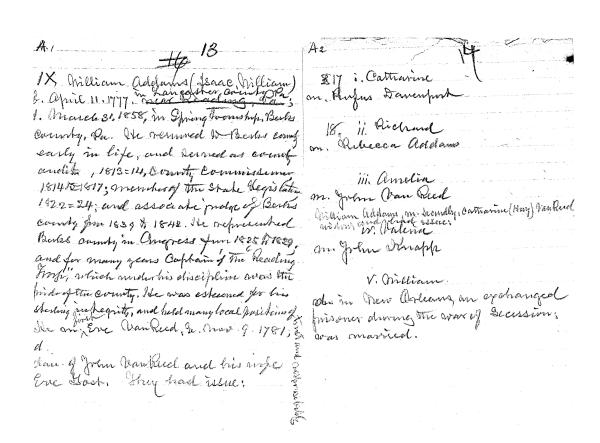 A.1
13
IX, William Addams (Isaac, William)
in Lancaster County, Pa
b. April 11. 1777. near Reading, Pa;
d. March 31, 1858, in Spring Township, Berks
County, Pa. He removed to Berks county
early in life, and served as county
auditor, 1813=14, County Commissioner
1814 to 1817; member of the State Legislature
1822=24; and associate judge of Berks
county from 1839 to 1842. He represented
Berks county in Congress from 1825 to 1829,
and for many years Captain of the "Reading
Troop," which under his discipline was the
pride of the county. He was esteemed for his
sterling integrity, and held many local positions of
trust and responsibility
He m. first Eve Van Reed, b. Nov. 9. 1781,
d
dau. of John Van Reed and his wife
Eve Yost. They had issue:
A2
14
17 i. Catharine
m. Rufus Davenport
18. ii. Richard
m. Rebecca Addams
iii. Amelia
m. John Van Reed
William Addams, m. secondly, Catharine (Huy) Van Reed
widow, and had issue:
iv. Valeria
m. John Knapp
v. William
d. in New Orleans, an exchanged
prisoner during the war of Secession;
was married.